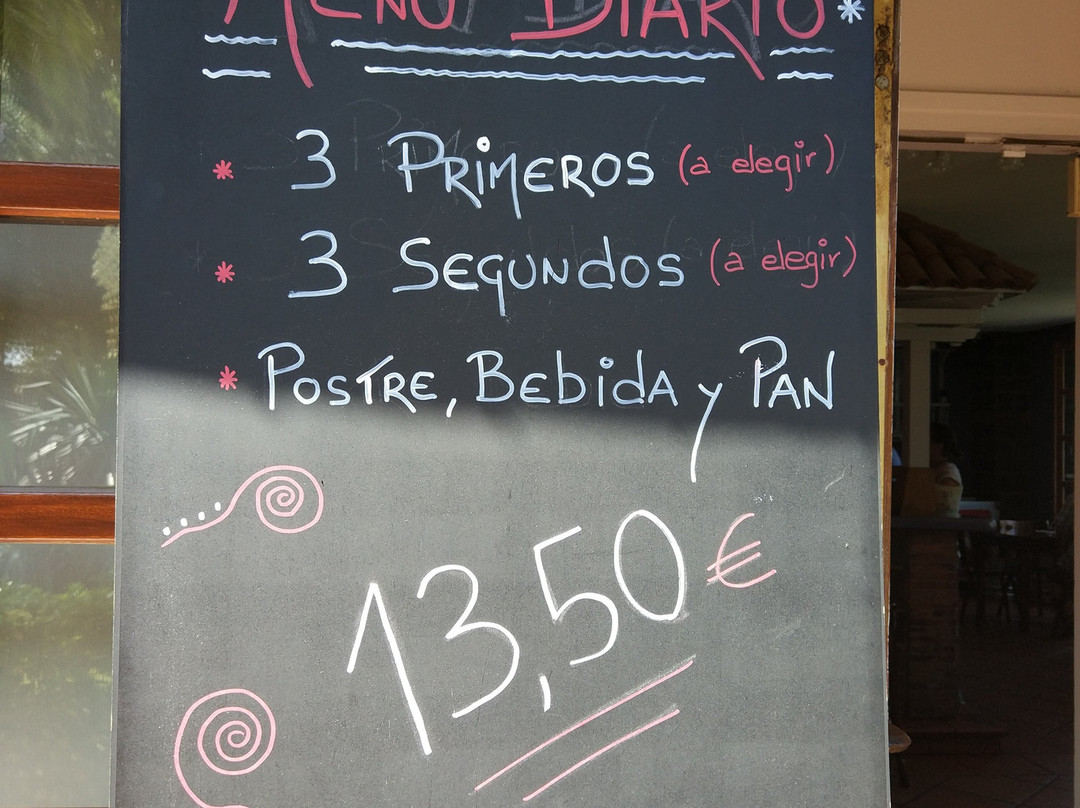 MENÚ DIARIO*
* 3 PRiMEROS (a elegir)
* 3 SEGUNdOS (a elegir)
* POSTRE, BEbidA y PAN
13,50 €